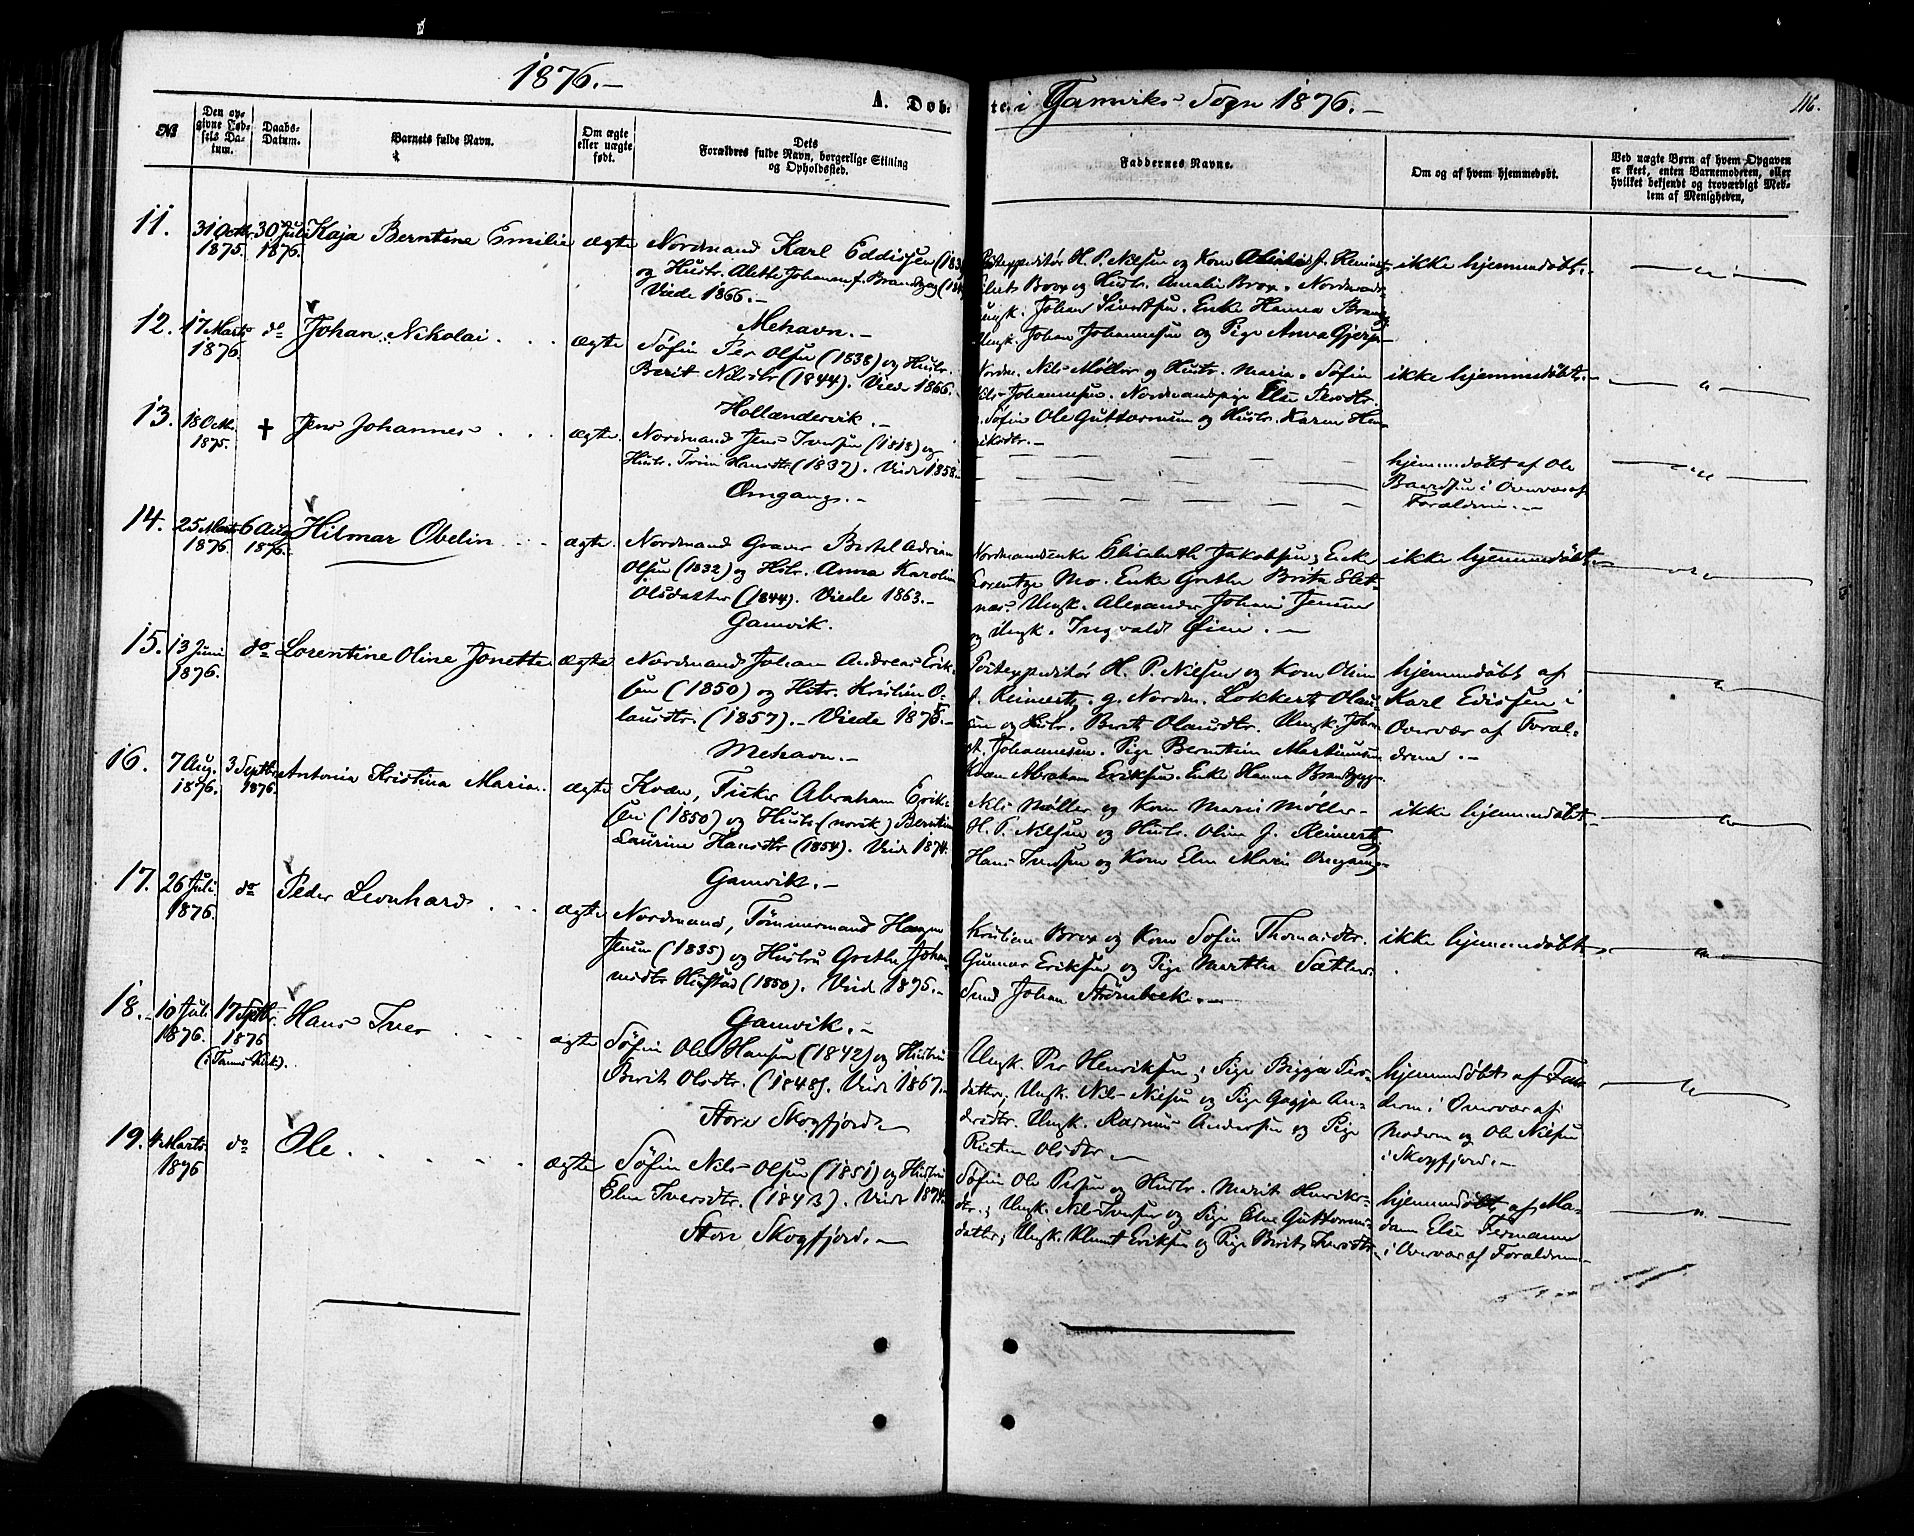 1876.-
A. Dob-
te i Gamviks Sogn 1876.-
116.
№
Den op-
givne Fød-
sels Da-
tum.
Daabs-
Datum.
Barnets fulde Navn.
Om ægte
eller uægte
født.
Dets
Forældres fulde Navn, borgerlige Stilling
og Opholdssted.
Faddernes Navne.
Om og af hvem hjemmedøbt.
Ved uægte Børn af hvem Opgaven
er skeet, enten Barnemoderen, eller
hvilket bekjendt og troværdigt Med-
lem af Menigheden.
11.
31 Octbr.
1875.
30 Juli
1876.
Kaja Berntine Emilie
ægte
Nordmand Karl Eddissen
og Hustr. Alette Johannesen f. Brandtzæg
Viede 1866.-
Mehavn.-
Postexpeditør H. P. Nilsen og Kone
Brox og Hustr. Amalie Brox. Nordmand
Ungk. Johan Sivertsen. Enke Hanna
Ungk. Johan Johannesen og Pige Anna
ikke hjemmedøbt.
12.
17 Marts
1876.
do
Johan Nikolai
ægte
Søfin Per Olsen (1838) og Hustr.
Berit Nilsdtr (1844). Viede 1866.
Hollændervik.-
Nordm. Nils Møller og Hustr. Maria. Søfin
Nils Johannesen. Nordmandspige Else Persdtr.
Søfin Ole Guttormsen og Hustr. Karen Hen-
riksdtr.-
ikke hjemmedøbt.-
13.
18 Octbr.
1875.
†
Jens Johannes
ægte.
Nordmand Jens Iversen (1818) og
Hustr. Trine Hansdtr (1837). Viede 1858.
Omgang.-
hjemmedøbt af Ole
Baardsen i Overvær af
Forældrene.-
14.
25 Marts
1876.
6 Aug
1876.
Hilmar Obelin
ægte.
Nordmand Graver Bertel Adrian
Olsen (1832) og Hstr. Anna Karoline
Olsdatter (1844). Viede 1863.-
Gamvik.
Nordmandsenke Elisabeth Jakobsen; Enke
Lorentze Mo. Enke Grethe Brita Slet-
næs Ungk. Alexander Johan Jensen
og Ungk. Ingvald Øien.-
ikke hjemmedøbt.
15.
13 Juni
1876.
do
Lorentine Oline Jonette
ægte
Nordmand Johan Andreas Erik-
sen (1850) og Hstr. Kristine O-
lausdtr. (1857).- Viede 1875.
Mehavn.-
Postexpeditør H. P. Nilsen og Kone Oline
f. Reinertz, g. Nordm. Lokkert Olau-
sen og Hstr. Berit Olausdtr. Ungk. Johan
A. Johannesen. Pige Berntine Martinusen
Kvæn Abraham Eriksen. Enke Hanna Brandtzæg.
hjemmedøbt af
Karl Edissen i
Overvær af Foræl-
drene.-
16.
7 Aug.
1876.
3 Septbr.
1876.
Antonia Kristina Maria.
ægte
Kvæn, Fisker Abraham Erik-
sen (1850) og Hustr. (norsk) Berntine
Laurine Hansdtr (1854). Viede 1874.
Gamvik.-
Nils Møller og Kone Maria Møller
H. P. Nilsen og Hustr. Oline J. Reinertz
Hans Iversen og Kone Elen Marie Omgang.
ikke hjemmedøbt.
17.
26 Juli
1876.
do
Peder Leonhard
ægte
Nordmand, Tømmermand Haagen
Jensen (1835) og Hustru Grethe Johan-
nesdtr Hustad (1850). Viede 1875.-
Gamvik.-
Kristian Brox og Kone Sofie Thomasdtr.
Gunnar Eriksen og Pige Martha Sæther.
Smed Johan Strømbeck.-
ikke hjemmedøbt.
18.
10 Juli
1876.
17 Septbr.
1876
(i Tanens Kirke).
Hans Iver
ægte
Søfin Ole Hansen (1842) og Hustru
Berit Olsdtr. (1848). Viede 1867.-
Store Skogfjord.
Ungk. Per Henriksen; Pige Bigga Pers-
datter; Ungk. Nils Nilsen og Pige Gagja An-
dersdtr. Ungk. Rasmus Andersen og Pige
Risten Olsdtr.-
hjemmedøbt af Fa-
deren i Overvær af
Moderen og Ole Nilsen
i Skogfjord.-
19.
4 Marts
1876
do
Ole
ægte
Søfin Nils Olsen (1851) og Hustru
Elen Iversdtr. (1843). Viede 1874.
Store Skogfjord.-
Søfin Ole Persen og Hustr. Marit Henriks-
dtr.; Ungk. Nils Iversen og Pige Elen Guttorms-
datter; Ungk. Klemet Eriksen og Pige Berit Iversdtr
hjemmedøbt af Ma-
dam Else Fermann
i Overvær af Forældrene